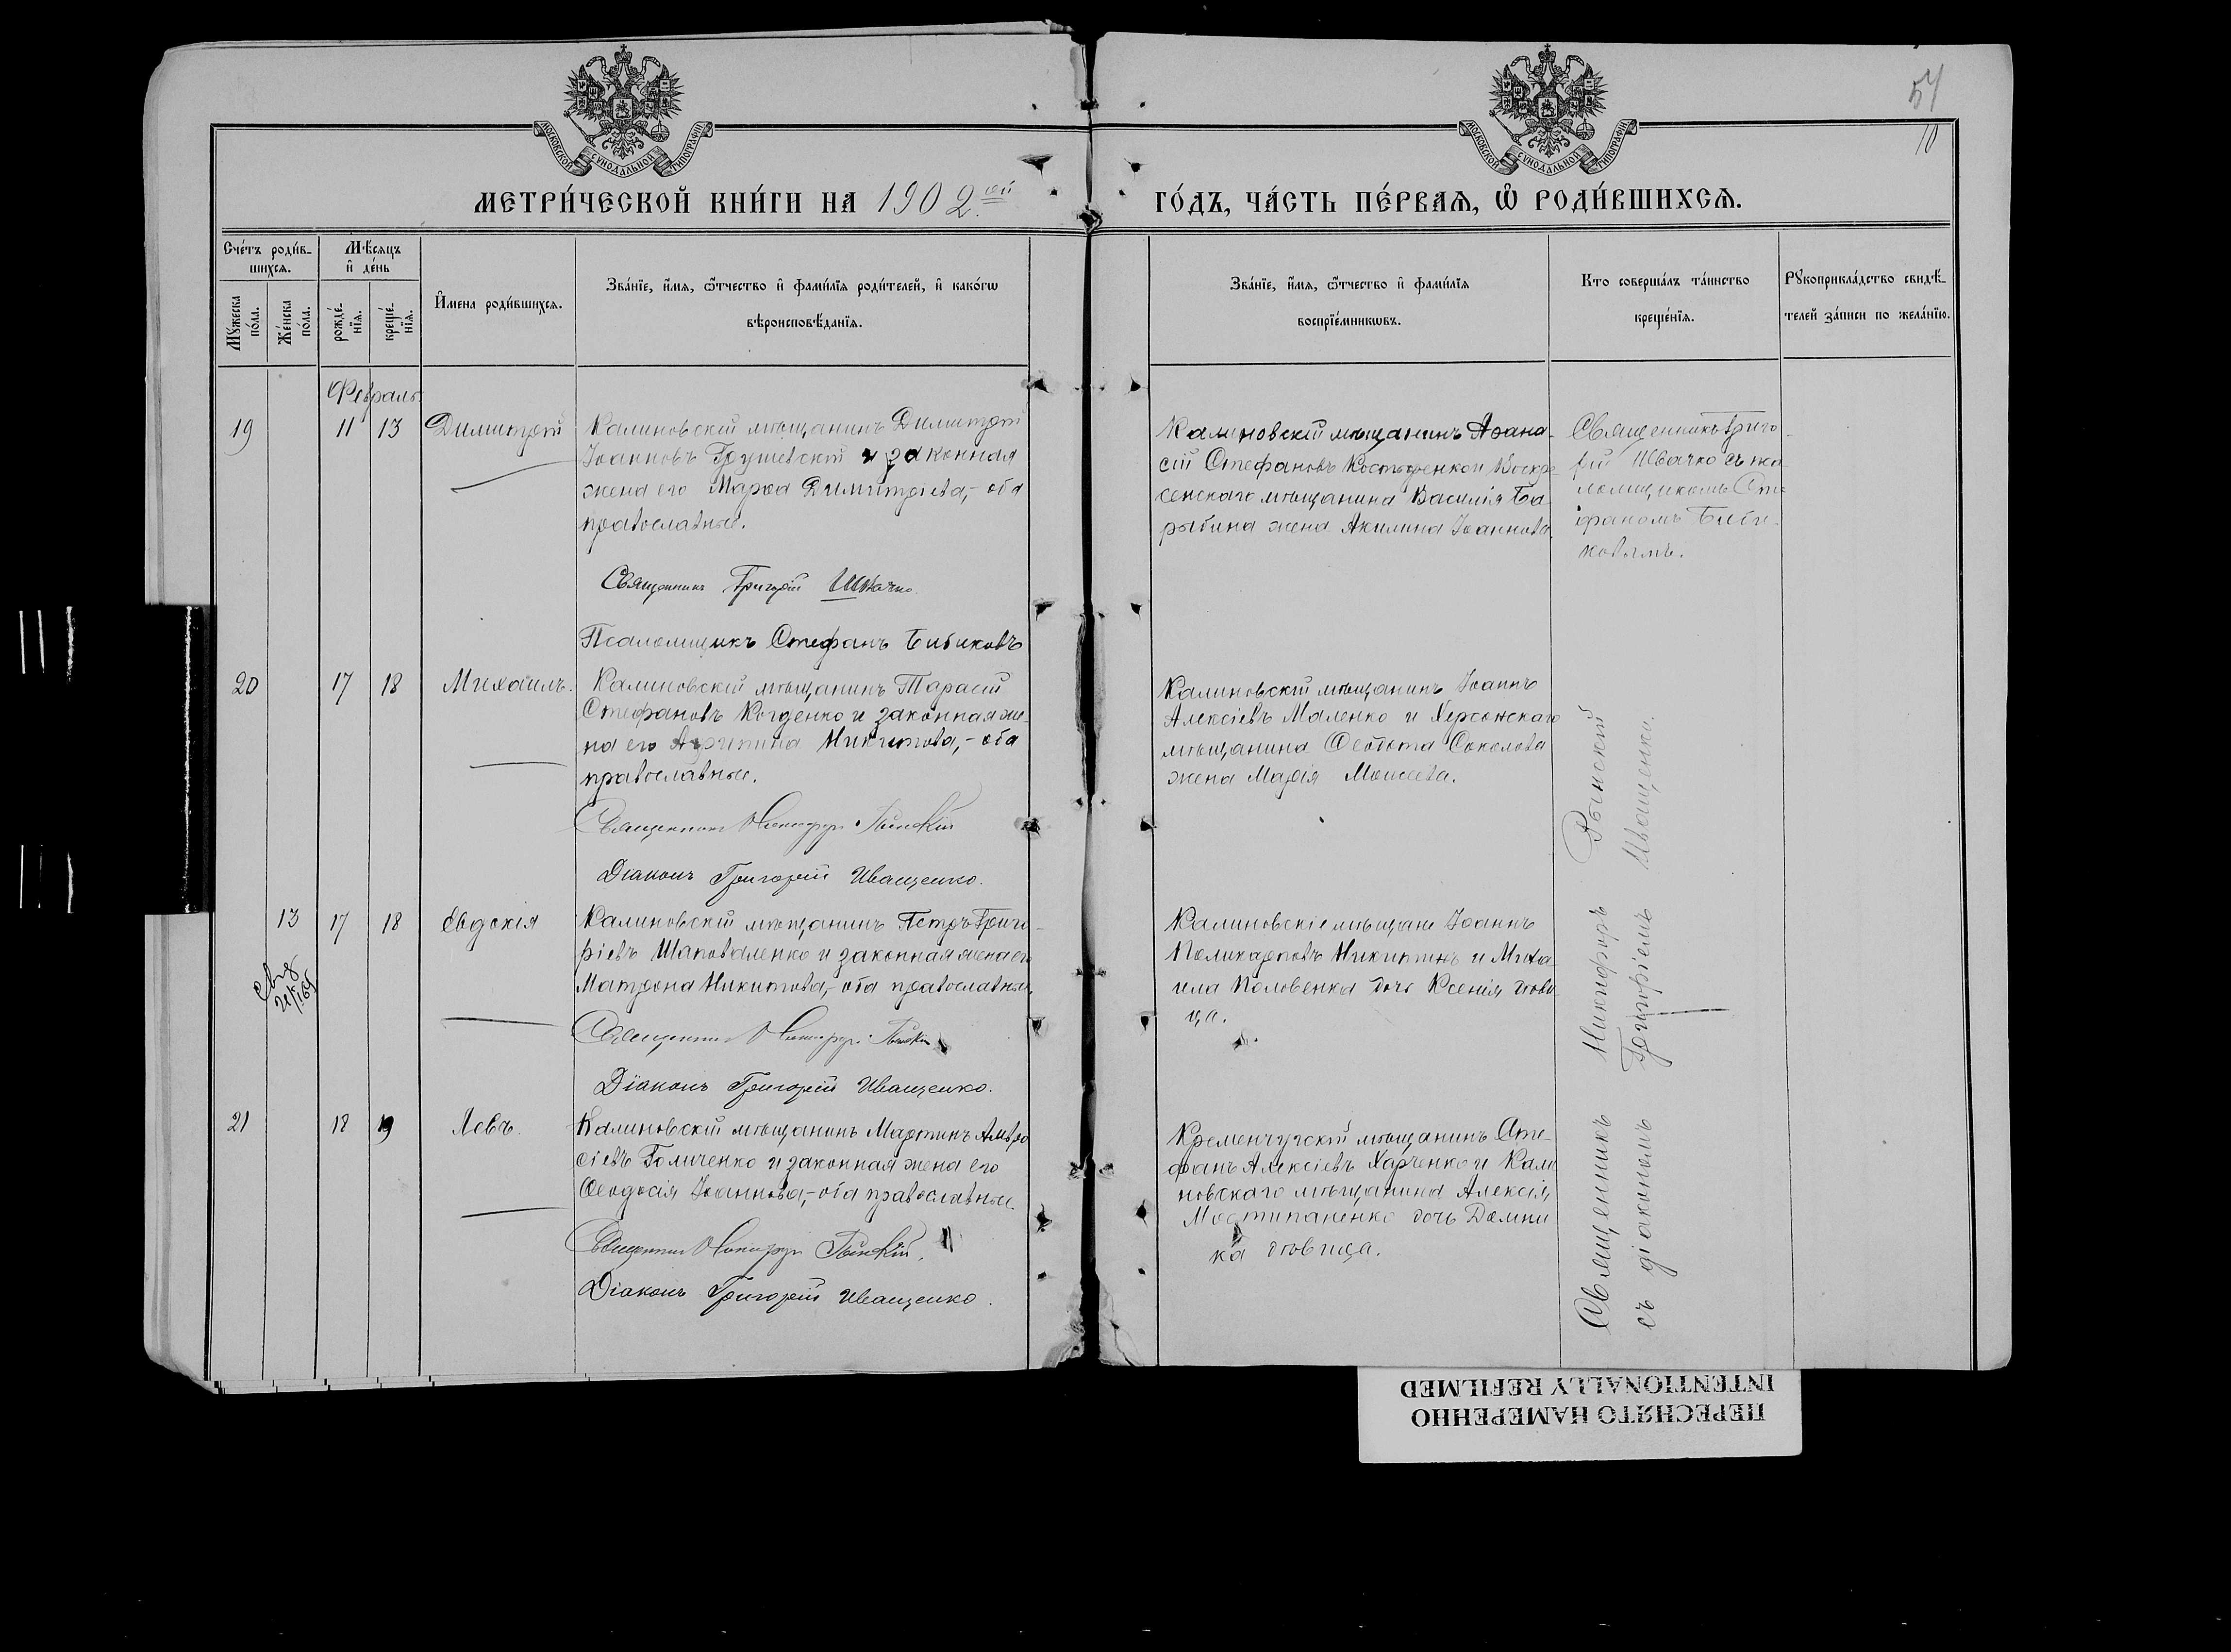 МОСКОВСКОЙ СѴНОДАЛЬНОЙ ТИПОГРАФІИ
МОСКОВСКОЙ СѴНОДАЛЬНОЙ ТИПОГРАФІИ
54
10
МЕТРИ́ЧЕСКОЙ КНИ́ГИ НА 1902.ой
ГО́ДЪ, ЧА́СТЬ ПЕ́РВАѦ, Ѡ РОДИ́ВШИХСѦ.
Сче́тъ роди́в-
шихсѧ.
Мꙋ́жеска по́ла.
Же́нска по́ла.
Мѣ́сяцъ
и҆ де́нь
рожде́-нїѧ.
креще́-нїѧ.
И҆мена роди́вшихсѧ.
Зва́нїе, и҆́мѧ, ѻ҆́тчество и҆ фами́лїѧ роди́телей, и҆ како́гѡ
вѣроисповѣ́данїѧ.
Зва́нїе, и҆́мѧ, ѻ҆́тчество и҆ фами́лїѧ
воспрїе́мникѡвъ.
Кто соверша́лъ та́инство
креще́нїѧ.
Рꙋкоприкла́дство свидѣ́-
телей за́писи по жела́нїю.
Февраль
19
11 13
Димитрій
Калиновскій мѣщанинъ Димитрій
Іоанновъ Грушевскій и законная
жена его Марѳа Димитріева,- оба
православные.
Священникъ Григорій Швачко
Псаломщикъ Стефанъ Бибиковъ
Калиновскій мѣщанинъ Аѳана-
сій Стефановъ Костюченко и Воскре-
сенскаго мѣщанина Василія Ба-
рыбина жена Акилина Іоаннова.
Священникъ Григо-
рій Швачко съ пса-
ломщикомъ Сте-
фаномъ Биби-
ковымъ.
20
17 18
Михаилъ.
Калиновскій мѣщанинъ Тарасій
Стефановъ Когденко и законная же-
на его Агрипина Никитова,- оба
православные.
Священникъ Никифоръ Рынскій
Діаконъ Григорій Иващенко.
Калиновскій мѣщанинъ Іоаннъ
Алексіевъ Маленко и Херсонскаго
мѣщанина Ѳеодота Соколова
жена Марія Моисеева.
13
17 18
Евдокія
Калиновскій мѣщанинъ Петръ Григо-
ріевъ Шаповаленко и законная жена его
Матрона Никитова,- оба православные.
Священникъ Никифоръ Рынскій
Діаконъ Григорій Иващенко.
Калиновскіе мѣщане Іоаннъ
Поликарповъ Никитинъ и Миха-
ила Половенка дочь Ксенія дѣви-
ца.
21
18 19
Левъ.
Калиновскій мѣщанинъ Мартинъ Амвро-
сіевъ Голиченко и законная жена его
Ѳеодосія Іоаннова,- оба православные.
Священникъ Никифоръ Рынскій.
Діаконъ Григорій Иващенко.
Кременчугскій мѣщанинъ Сте-
фанъ Алексіевъ Харченко и Кали-
новскаго мѣщанина Алексія
дочь Домни-
ка дѣвица.
Священникъ Никифоръ Рынский
съ діакономъ Григоріемъ Иващенки.
ПЕРЕСНЯТО НАМЕРЕННО
INTENTIONALLY REFILMED